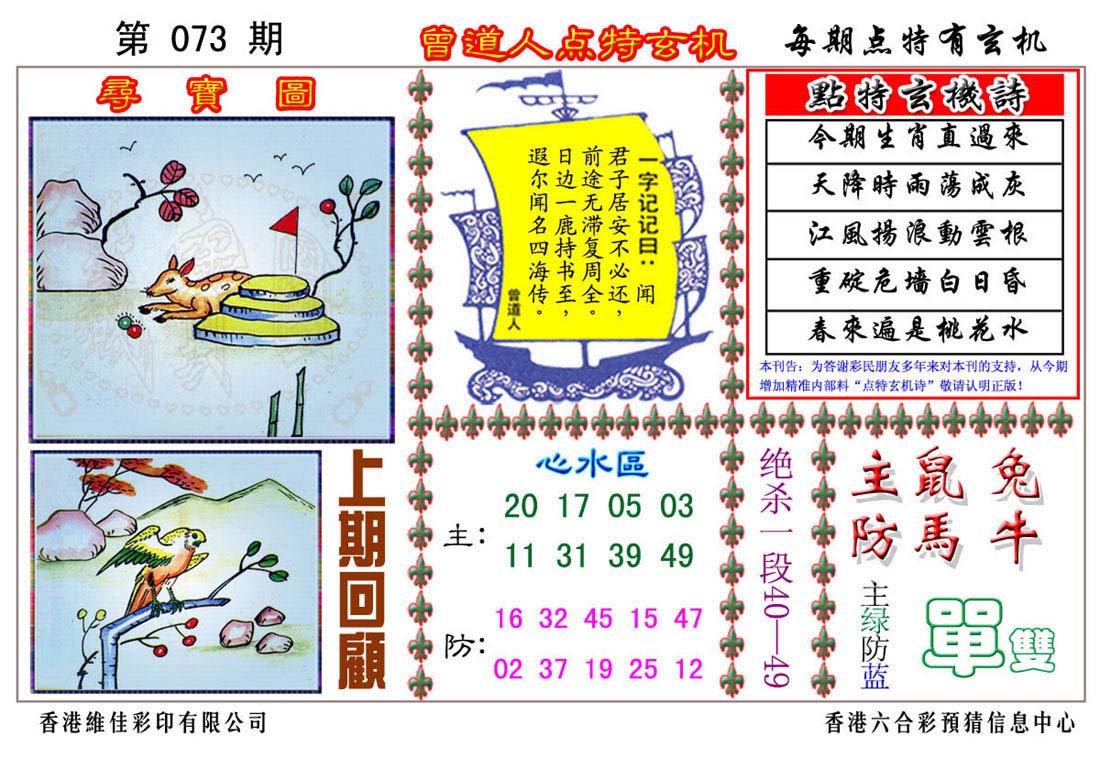 第 073 期
曾道人点特玄机
每期点特有玄机
尋寶圖
一字记记曰：闻
君子居安不必还，
前途无滞复周全。
日边一鹿持书至，
遐尔闻名四海传。
曾道人
點特玄機詩
今期生肖直過來
天降時雨蕩成灰
江風揚浪動雲根
重碇危墻白日昏
春來遍是桃花水
本刊告：为答谢彩民朋友多年来对本刊的支持，从今期
增加精准内部料“点特玄机诗”敬请认明正版！
上期回顧
心水區
主：
20 17 05 03
11 31 39 49
防：
16 32 45 15 47
02 37 19 25 12
绝杀一段40—49
主鼠兔
防馬牛
主绿防蓝
單雙
香港維佳彩印有限公司
香港六合彩預猜信息中心